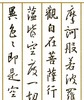 摩訶般若波羅
觀自在菩薩行
蘊皆空度一切
異色色即是空